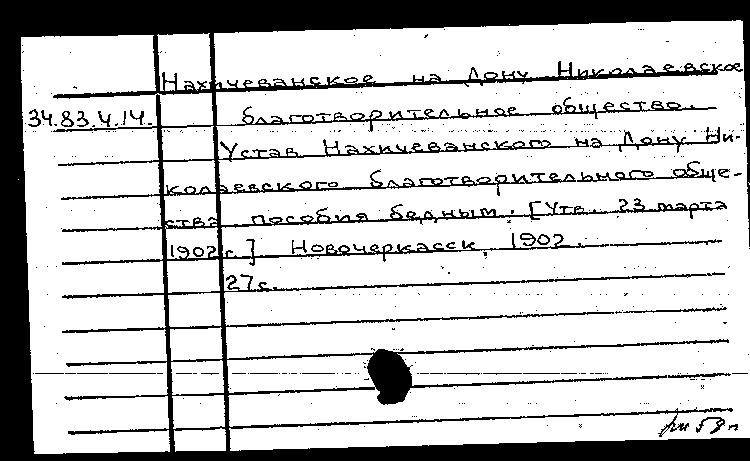 Нахичеванское на Дону Николаевское
34.83.4.14. благотворительное общество.
Устав Нахичеванского на Дону Ни-
колаевского благотворительного обще-
ства пособия бедным. [Утв. 23 марта
1902 г.] Новочеркасск, 1902.
27 с.